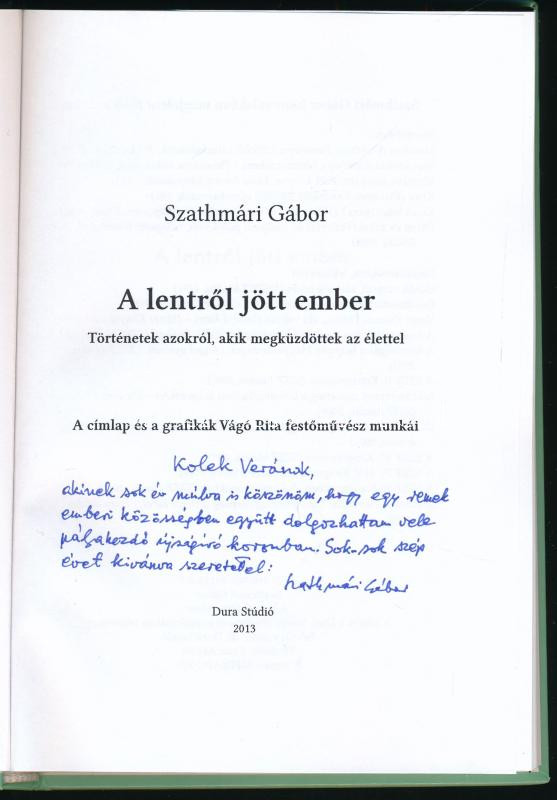 Szathmári Gábor
A lentről jött ember
Történetek azokról, akik megküzdöttek az élettel
A címlap és a grafikák Vágó Rita festőművész munkái
Kolek Verának,
akinek sok év múlva is köszönöm, hogy egy remek
emberi közösségben együtt dolgozhattam vele
pályakezdő újságíró koromban. Sok-sok szép
évet kívánva szeretettel:
Szathmári Gábor
Dura Stúdió
2013